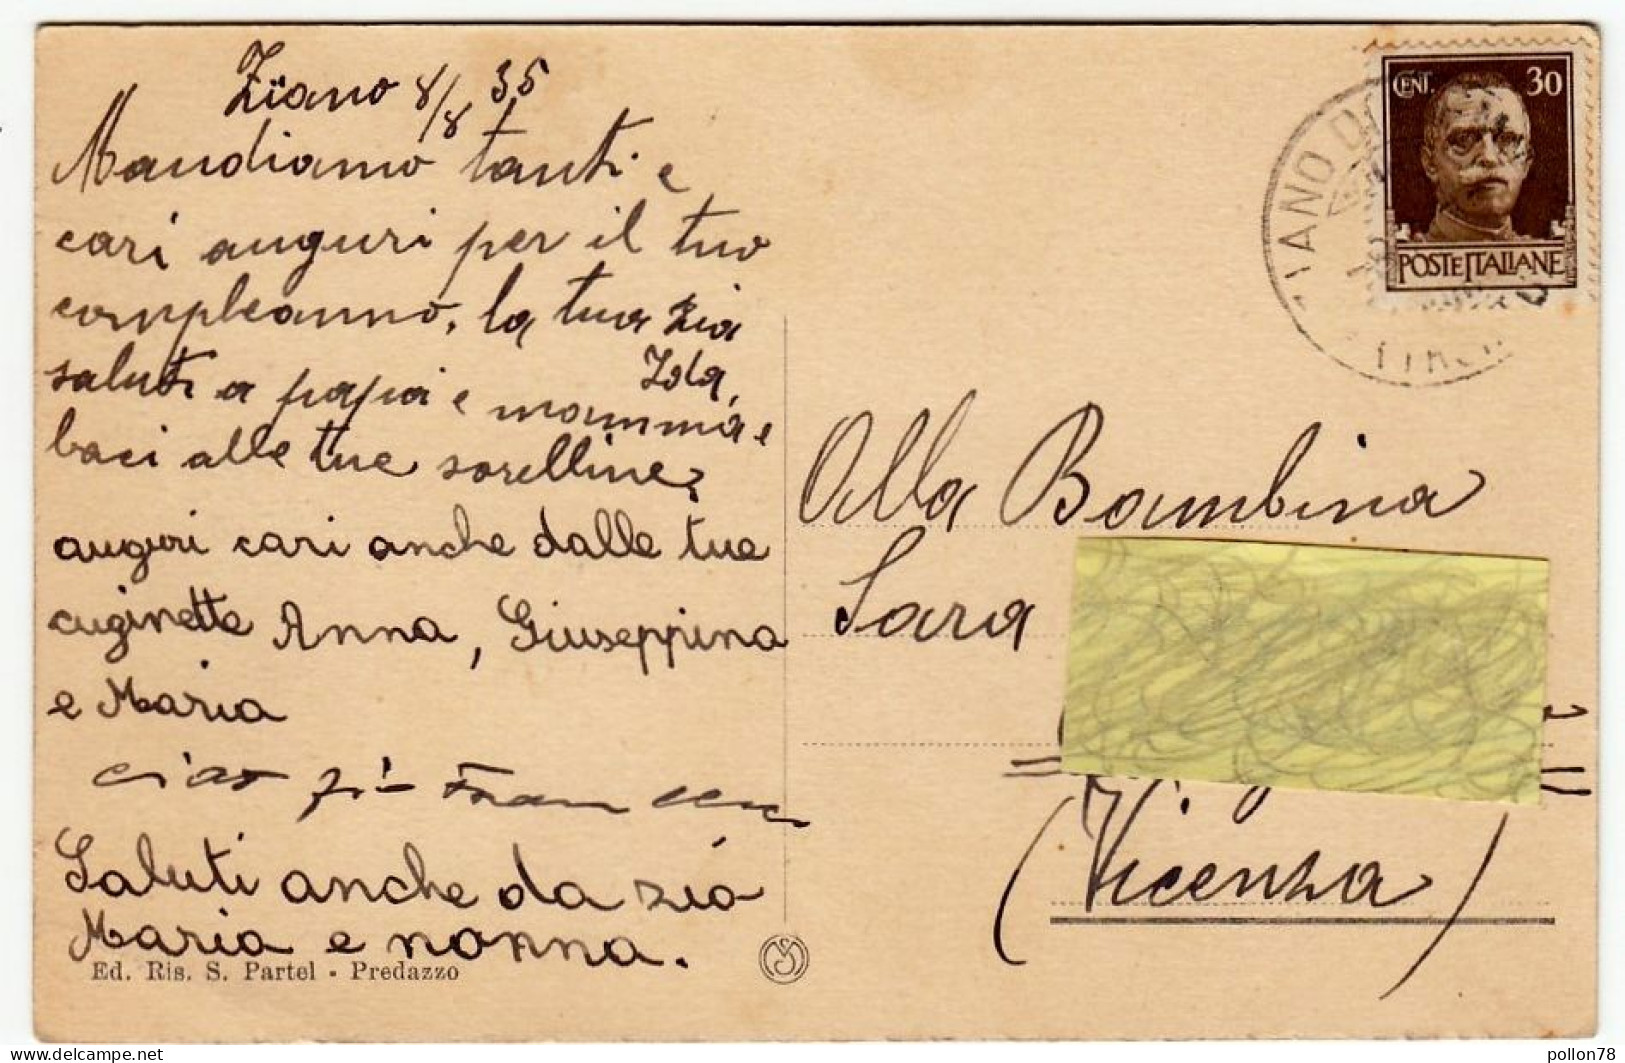 Ziano 8/8 35
Mandiamo tanti e
cari auguri per il tuo
compleanno. la tua zia
Ida,
saluti a papà e mamma e
baci alle tue sorelline,
auguri cari anche dalle tue
cuginette Anna, Giuseppina
e Maria
ciao
Saluti anche da zia
Maria e nonna.
Ed. Ris. S. Partel - Predazzo
CENT. 30
POSTE ITALIANE
Alla Bambina
Sara
(Vicenza)
delcampe.net
pollon78